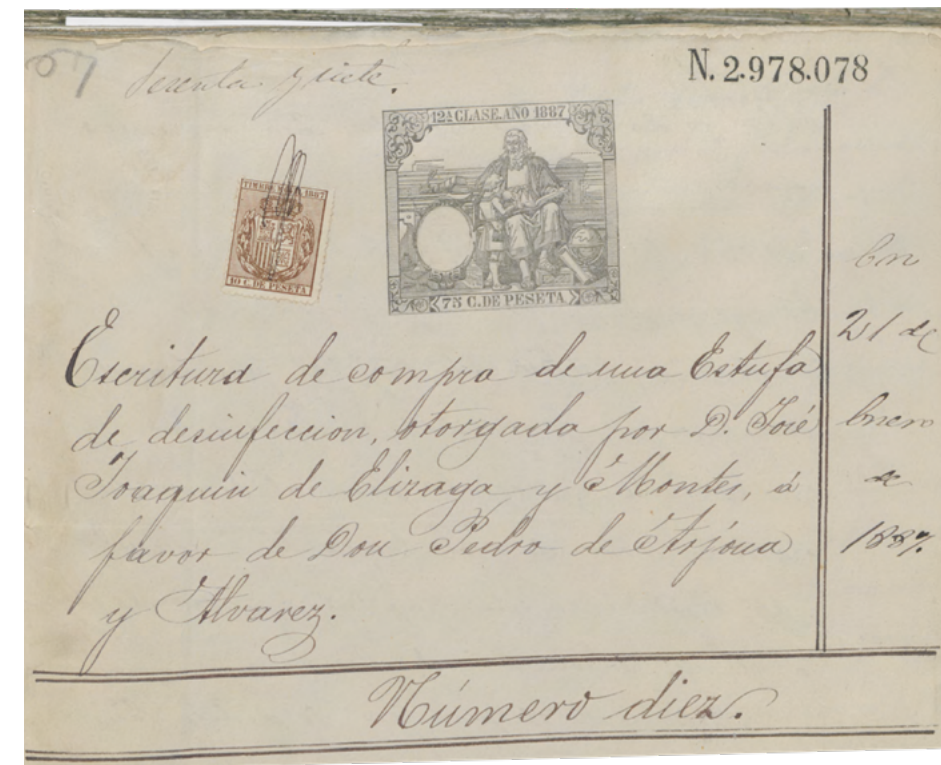 67
Sesenta y siete.
N. 2.978.078
12ª CLASE. AÑO 1887
TIMBRE 1887
10 C. DE PESETA
75 C. DE PESETA
Escritura de compra de una Estufa
de desinfeccion, otorgada por D. José
Joaquin de Elizaga y Montes, á
favor de Don Pedro de Arjona
y Alvarez.
En
21 de
Enero
de
1887.
Número diez.